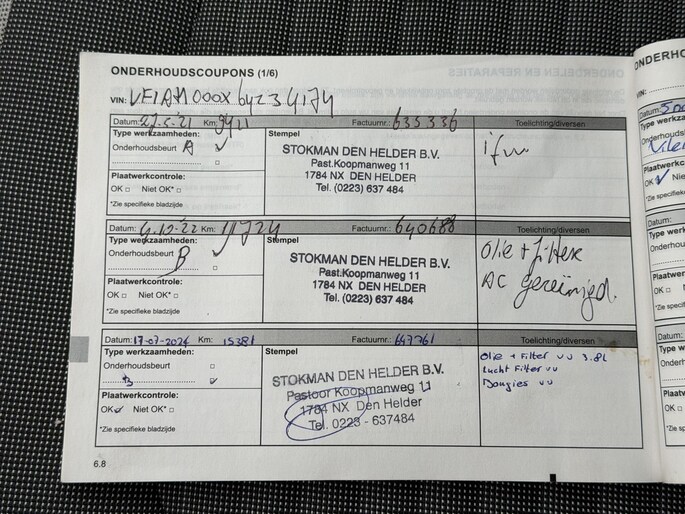 ONDERHOUDSCOUPONS (1/6)
VIN:
Datum: Km: 9911 Factuurnr.: 635336 Toelichting/diversen
Type werkzaamheden: Stempel
Onderhoudsbeurt A ✓
STOKMAN DEN HELDER B.V.
Past.Koopmanweg 11
1784 NX DEN HELDER
Tel. (0223) 637 484
Plaatwerkcontrole:
OK □ Niet OK* □
*Zie specifieke bladzijde
Datum: Km: 11724 Factuurnr.: 640688 Toelichting/diversen
Type werkzaamheden: Stempel
Onderhoudsbeurt ✓
B □
STOKMAN DEN HELDER B.V.
Past.Koopmanweg 11
1784 NX DEN HELDER
Tel. (0223) 637 484
Olie + filter
AC gereinigd.
Plaatwerkcontrole:
OK □ Niet OK* □
*Zie specifieke bladzijde
Datum: 17-07-2024 Km: 15381 Factuurnr.: 647761 Toelichting/diversen
Type werkzaamheden: Stempel
Onderhoudsbeurt □
B ✓
STOKMAN DEN HELDER B.V.
Pastoor Koopmanweg 11
1784 NX Den Helder
Tel. 0223 - 637484
Olie + Filter vv 3.8L
Lucht Filter vv
Plaatwerkcontrole:
OK ✓ Niet OK* □
*Zie specifieke bladzijde
6.8
VIN:
Datum:
Type werkza
Onderhouds
Plaatwerkc
OK ✓
*Zie specifiek
Datum:
Type werk
Onderhou
Plaatwer
OK □
*Zie specif
Datum:
Type we
Onderh
Plaatw
OK □